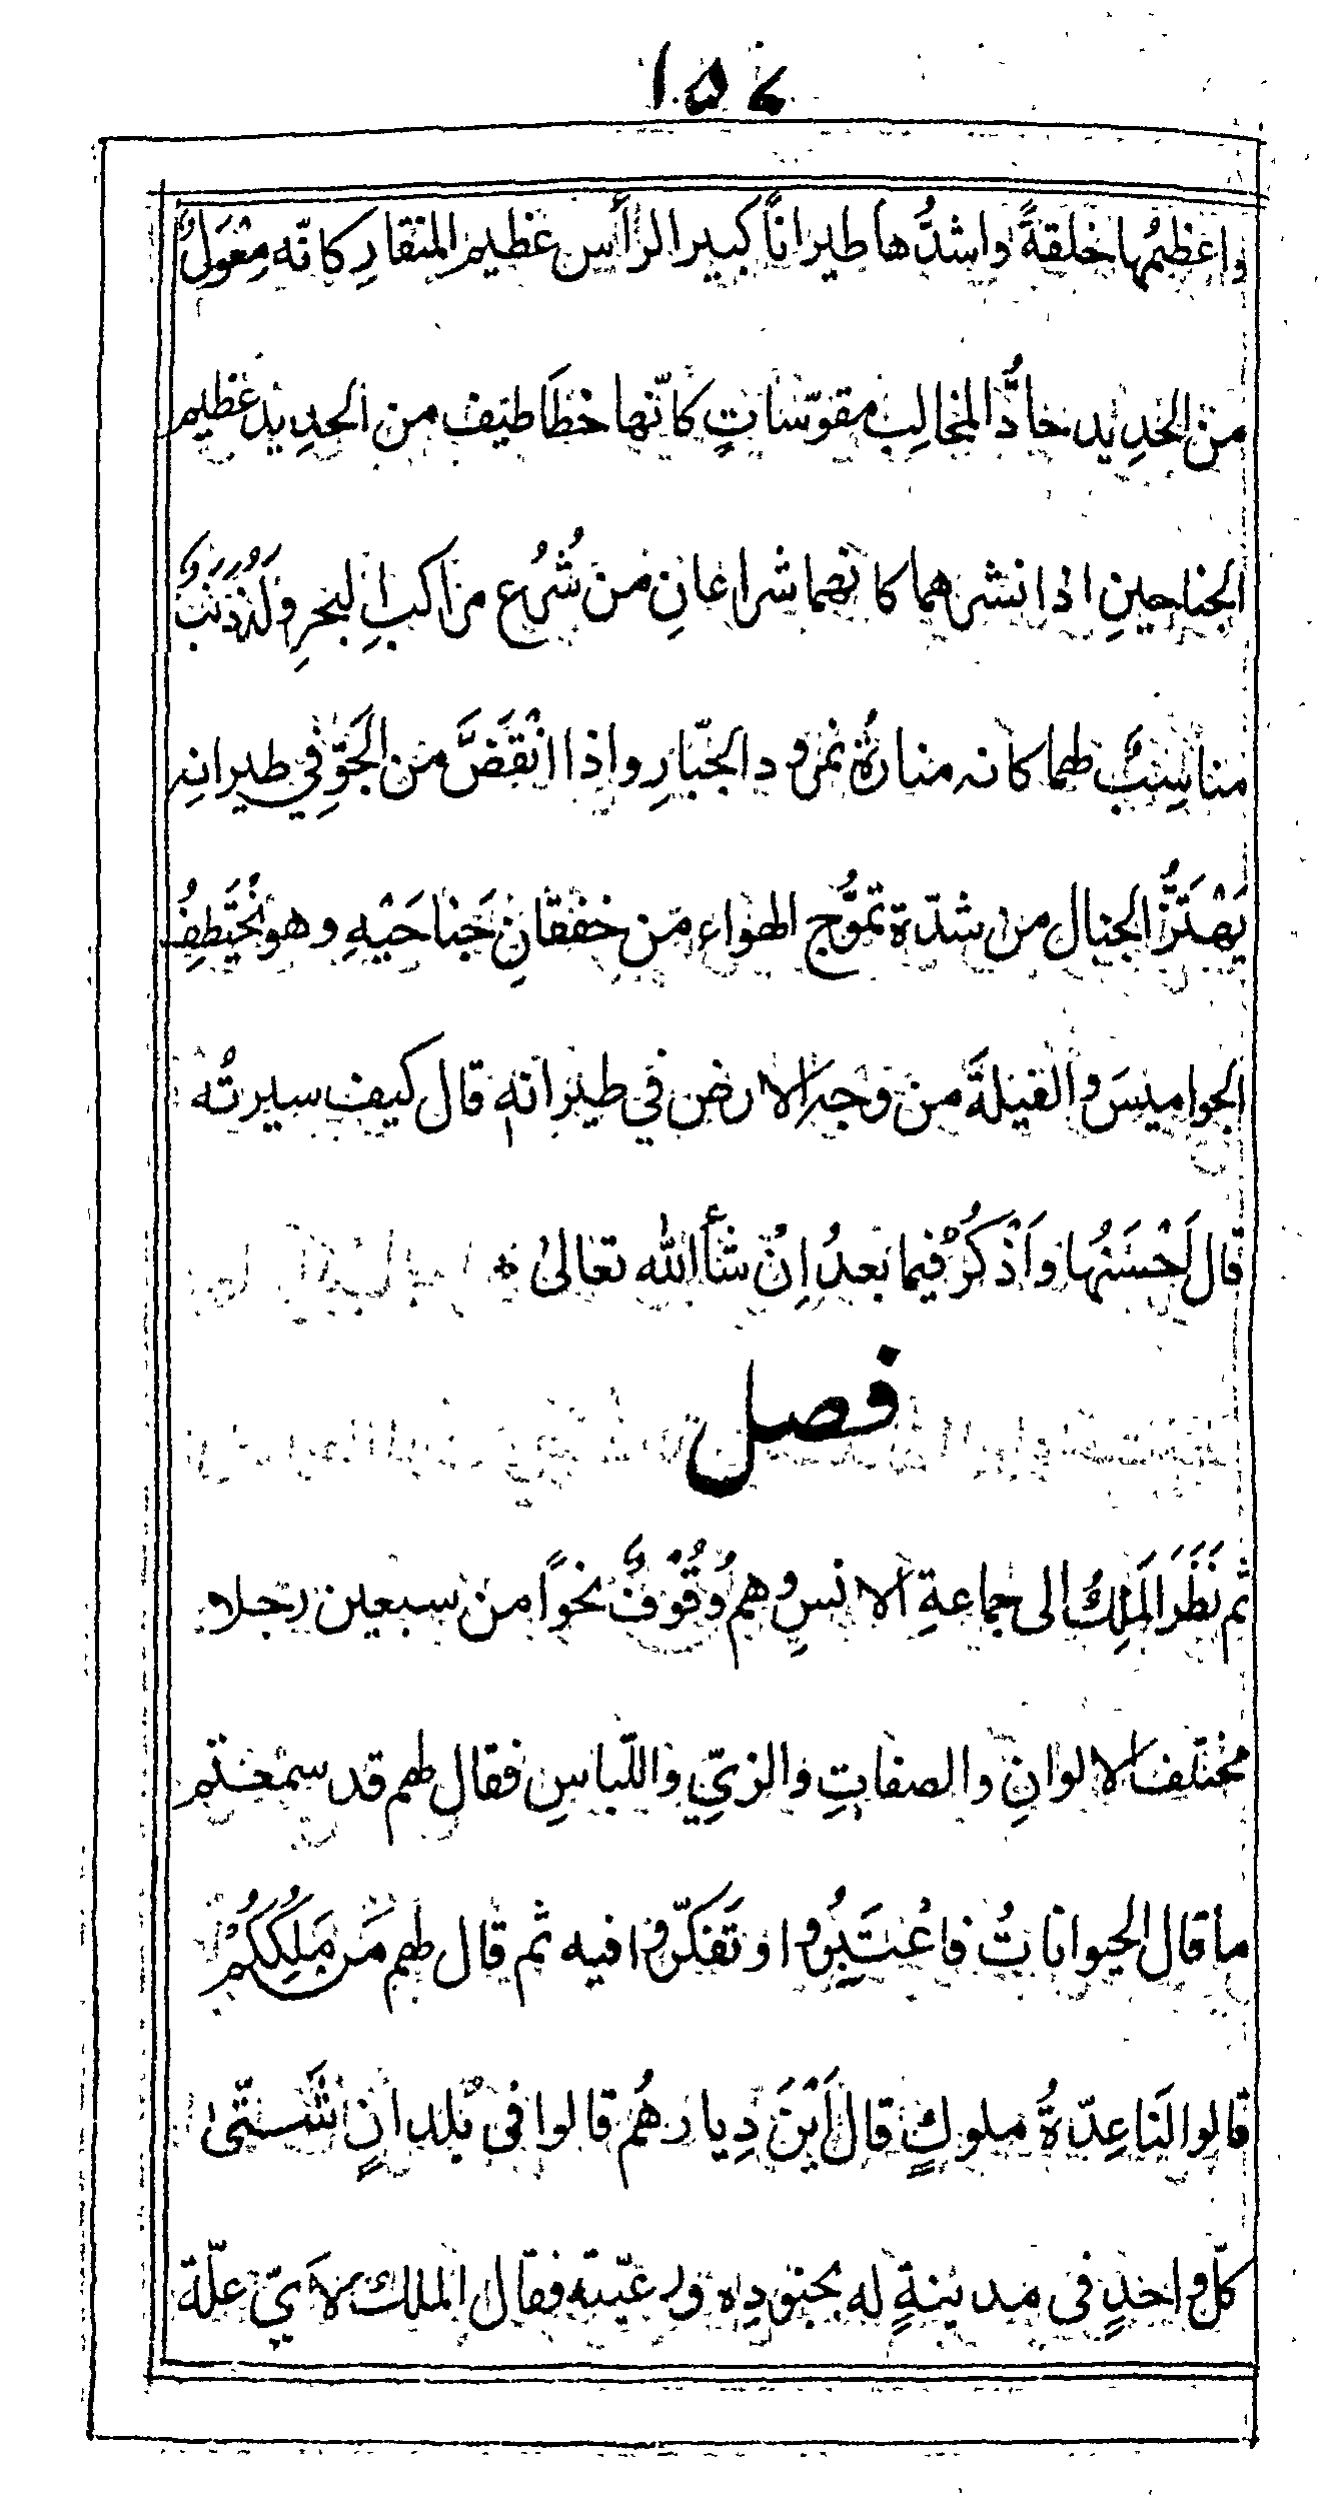 ١٥٤
واعظمُها خلقةً واشدُّها طيرانًا كبير الرأس عظيم المنقارِ كانّه مِعْوَلٌ
من الحدِيد حادُّ المخالِبِ مقوّساتٍ كانّها خطَاطيف من الحدِيد عظيم
الجناحينِ اذا نشرهما كانهما شراعانِ من شُرُع مراكبِ البحرِ ولَهُ ذَنَبٌ
مناسِبٌ لهما كانه منارةُ نمرود الجبّارِ واذا انْقَضَّ من الجَوِّ في طيرانِه
يَهْتَزُّ الجبال من شدّة تموُّج الهواء من خفقانِ جَناحَيْهِ وهو يَخْتَطِفُ
الجواميسَ والفيلةَ من وجه الارض في طيرانهِ قال كيف سيرتُه
قال اَحْسَنُها واَذْكُرُ فيما بعدُ اِنْ شأ الله تعالىٰ ه
فصل
ثم نَظَرَ المَلِكُ الى جماعةِ الانسِ وهم وُقُوْفٌ نحوًا من سبعين رجلا
مختلف الالوانِ والصفاتِ والزيِّ واللّباسِ فقال لهم قد سمعتم
ما قال الحيواناتُ فاعْتَبِرُوا وتَفكّروا فيه ثم قال لهم مَن مَلِكُكُمْ
قالوا لنا عِدّةُ ملوكٍ قال اَيْنَ دِيارهُم قالوا فى بُلدانٍ شَتّىٰ
كلّ واحدٍ فى مدينةٍ له بجنودِه ورعيّته فقال الملك لاَيّ علّة